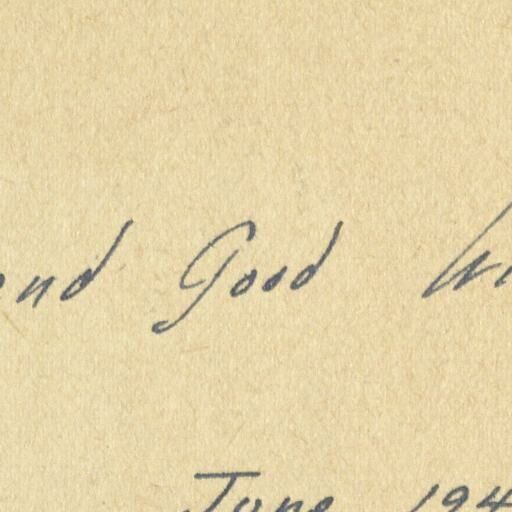 and Good Wi
June 194